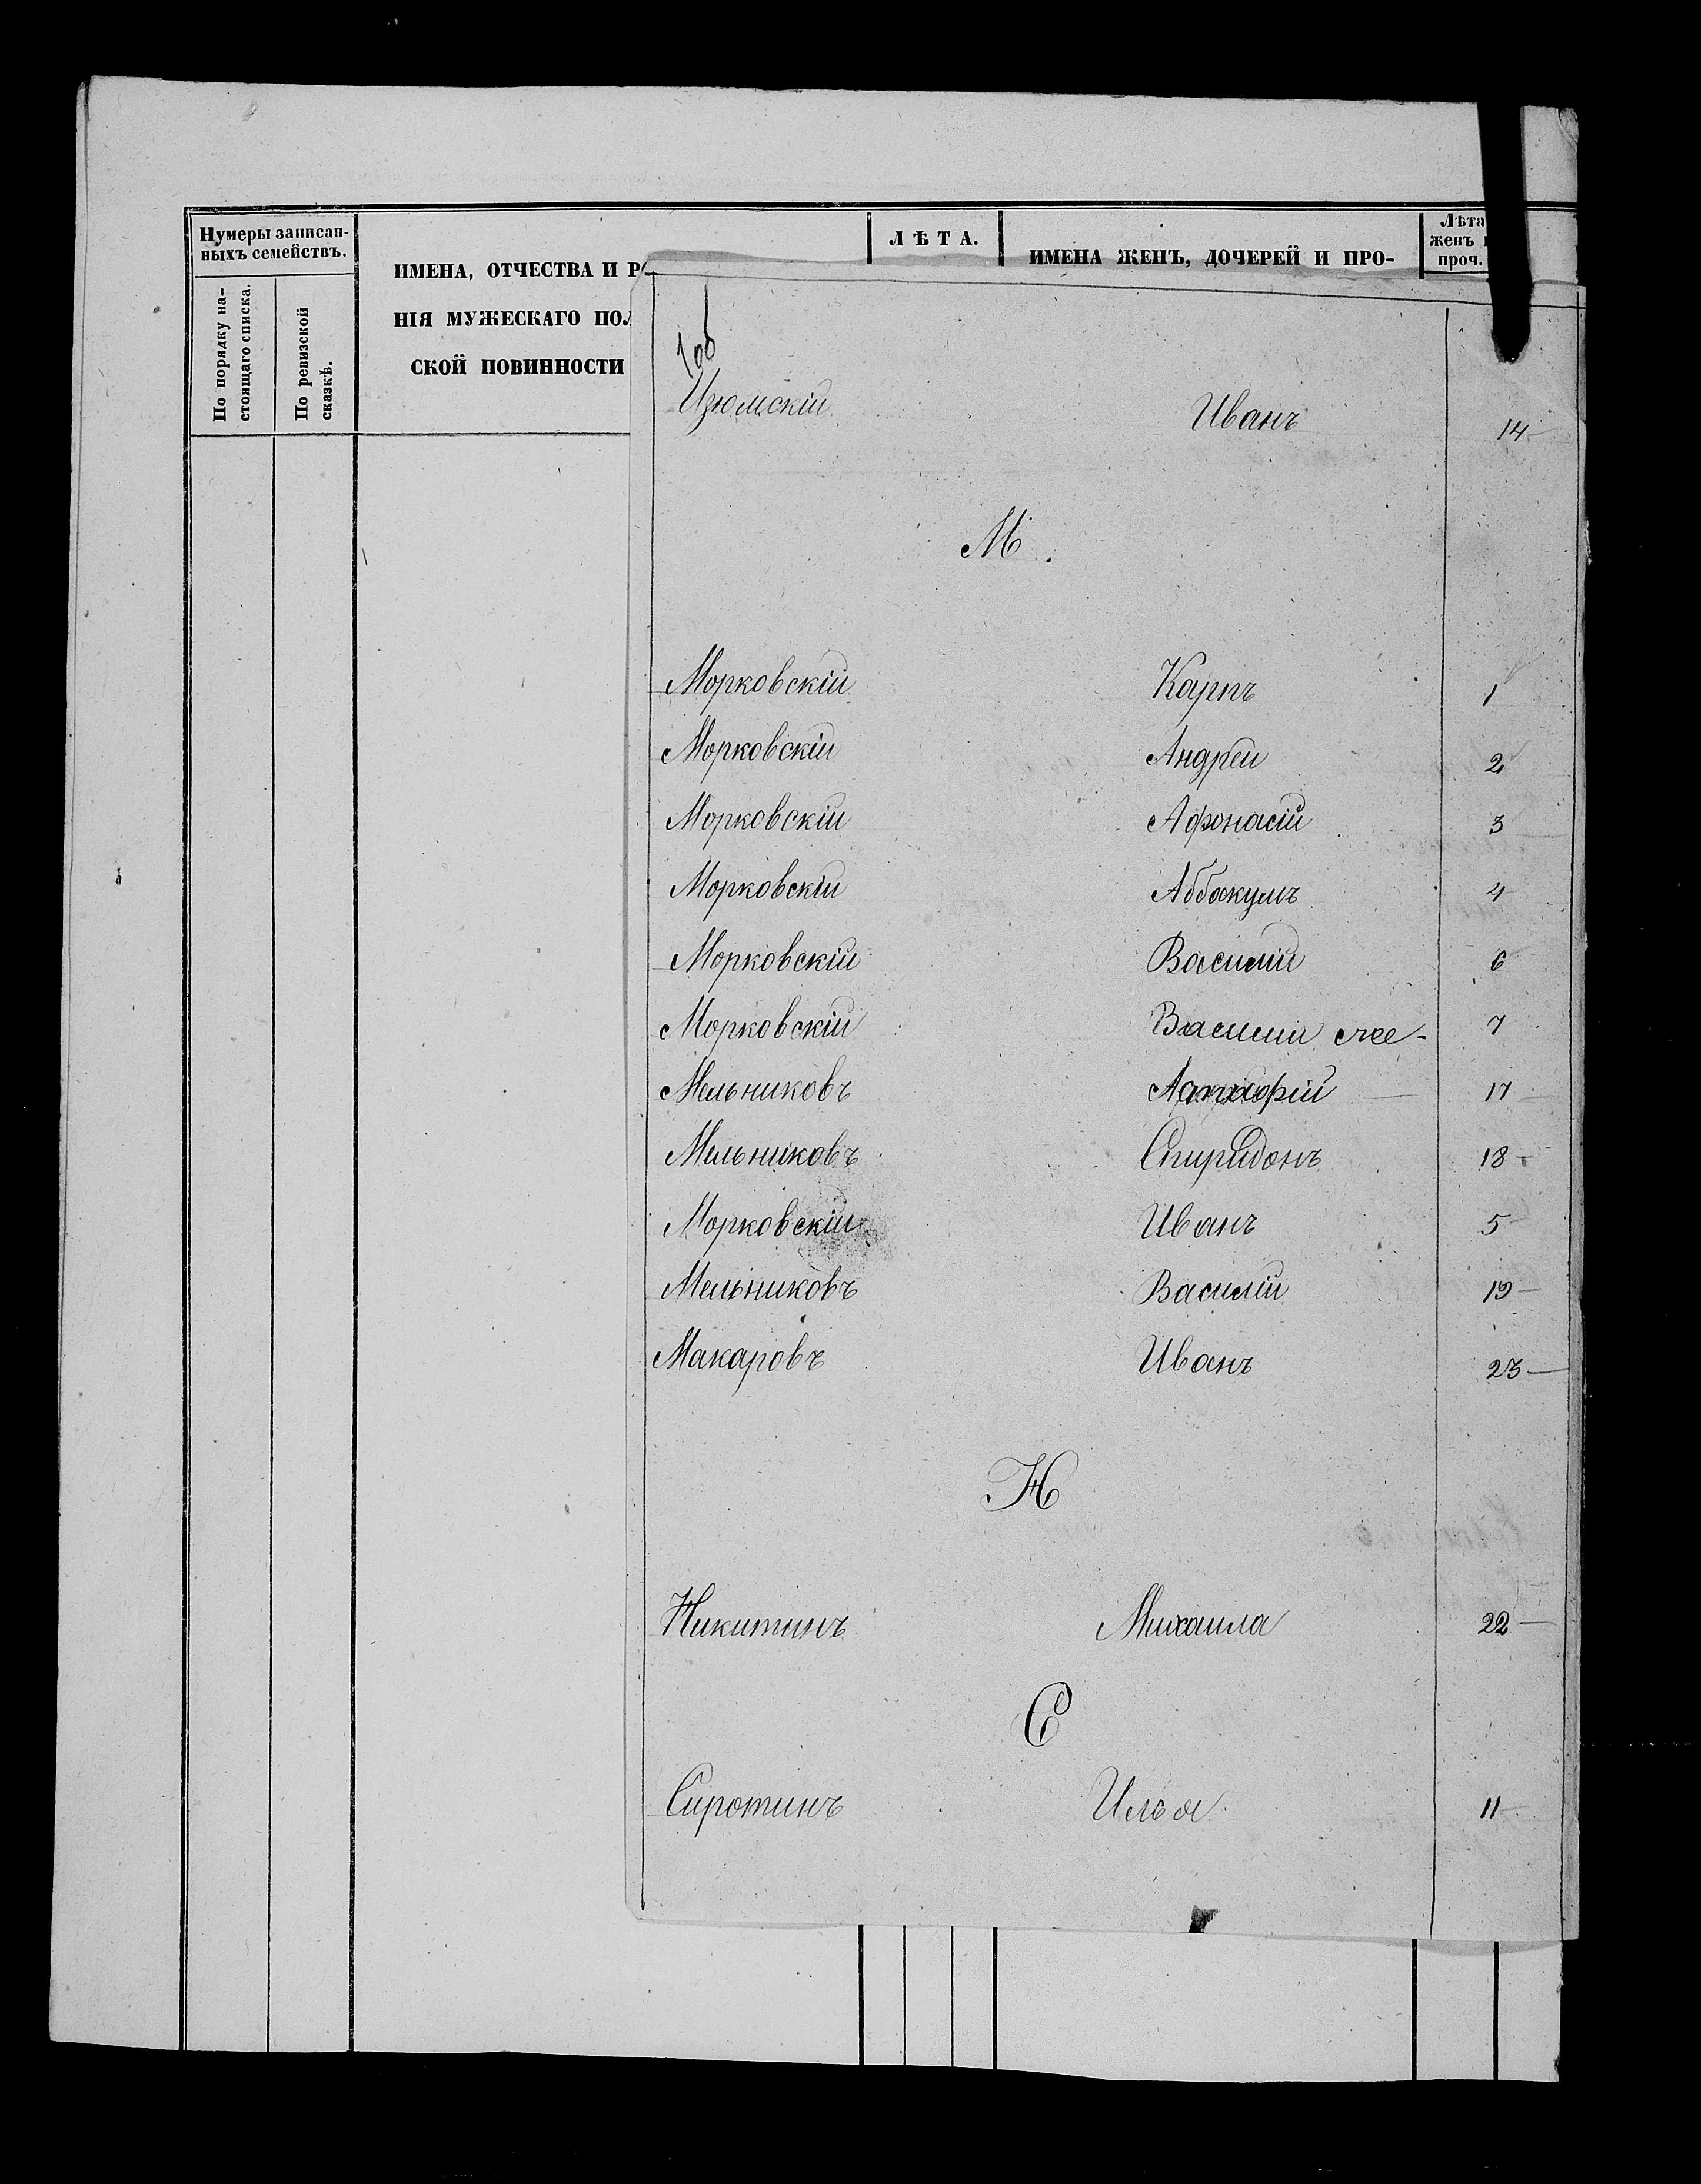 Нумеры записан-
ныхъ семействъ.
По порядку на-
стоящаго списка.
По ревизской
сказкѣ.
ИМЕНА, ОТЧЕСТВА И
НІЯ МУЖЕСКАГО
СКОЙ ПОВИННОСТИ
ЛѢТА.
ИМЕНА ЖЕНЪ, ДОЧЕРЕЙ И ПРО-
Лѣта
женъ
проч.
Изюмскій Иванъ 14
М.
Морковскій Карпъ 1
Морковскій Андрей 2
Морковскій Афонасій 3
Морковскій Аббакумъ 4
Морковскій Василій 6
Морковскій Василій 7
Мельниковъ 17
Мельниковъ Спиридонъ 18
Морковскій Иванъ 5
Мельниковъ Василій 19
Макаровъ Иванъ 23
Н
Никитинъ Михаила 22
С
Сиротинъ Илья 11